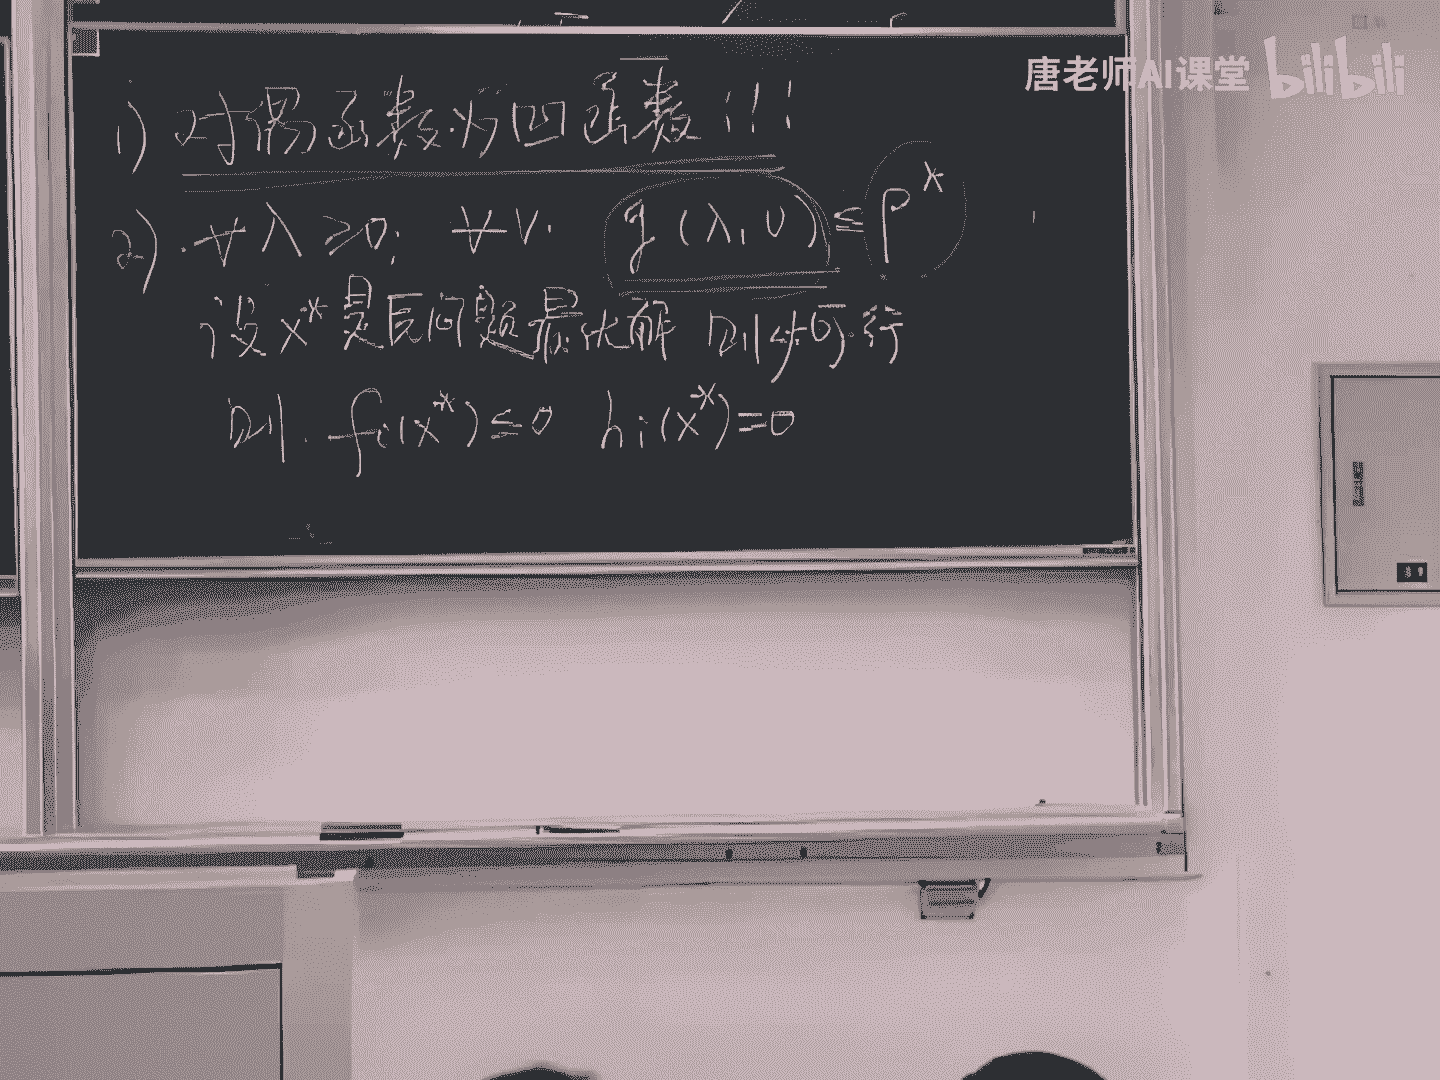 唐老师AI课堂 bilibili
1) 对偶函数必凹函数!!!
2) ∀λ≥0; ∀v. g(λ,υ)≤P*
设x*是原问题最优解 则必可行
则. fi(x*)≤0 hi(x*)=0